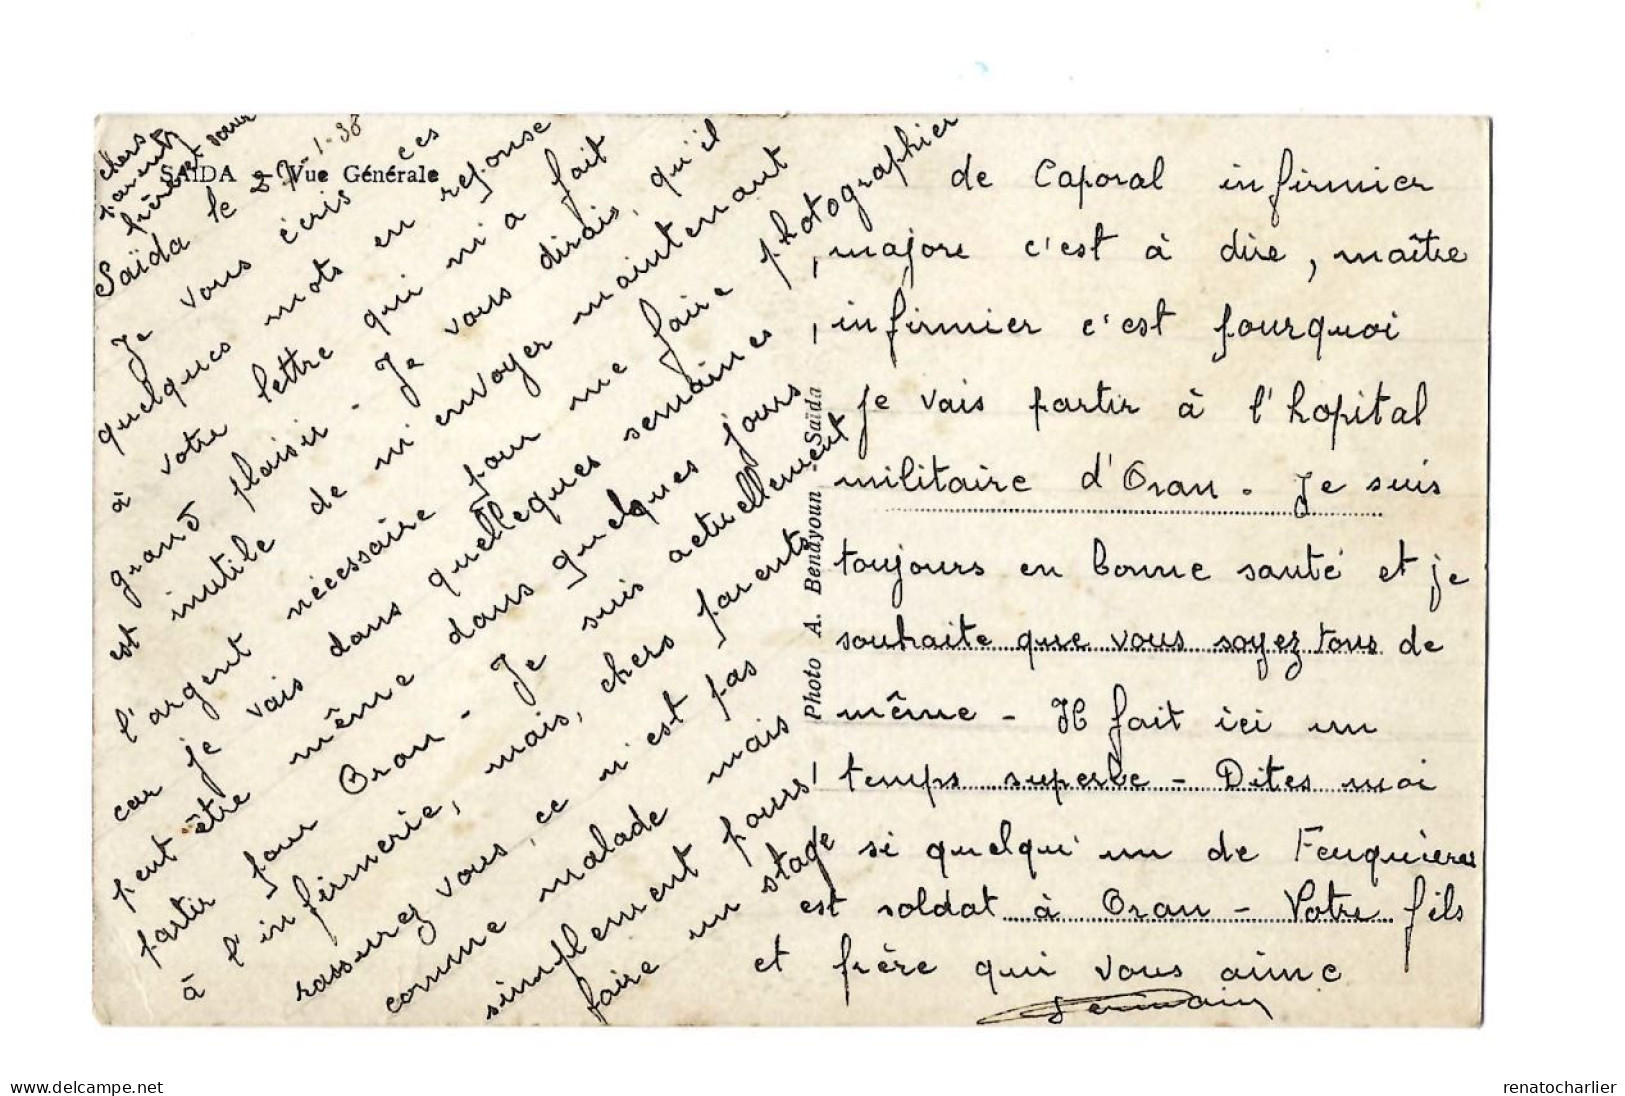 SAÏDA - Vue Générale
Saïda le 27-1-38
chers
parents
frère et sœur
Je vous écris ces
quelques mots en reponse
à votre lettre qui m'a fait
grand plaisir - Je vous dirais, qu'il
est inutile de m'envoyer maintenant
l'argent nécessaire pour me faire photographier
car je vais dans quelleques semaines
peut être même dans quelques jours
partir pour Oran - Je suis actuellement
à l'infirmerie, mais, chers parents
rassurez vous, ce n'est pas
comme malade mais
simplement pour
faire un stage
Photo A. Bendyoun - Saïda
de Caporal infirmier
majore c'est à dire, maître
infirmier c'est pourquoi
je vais partir à l'hopital
militaire d'Oran. Je suis
toujours en bonne santé et je
souhaite que vous soyez tous de
même - Il fait ici un
temps superbe - Dites moi
si quelqu'un de Feuquières
est soldat à Oran - Votre fils
et frère qui vous aime
Germain
delcampe.net
renatocharlier